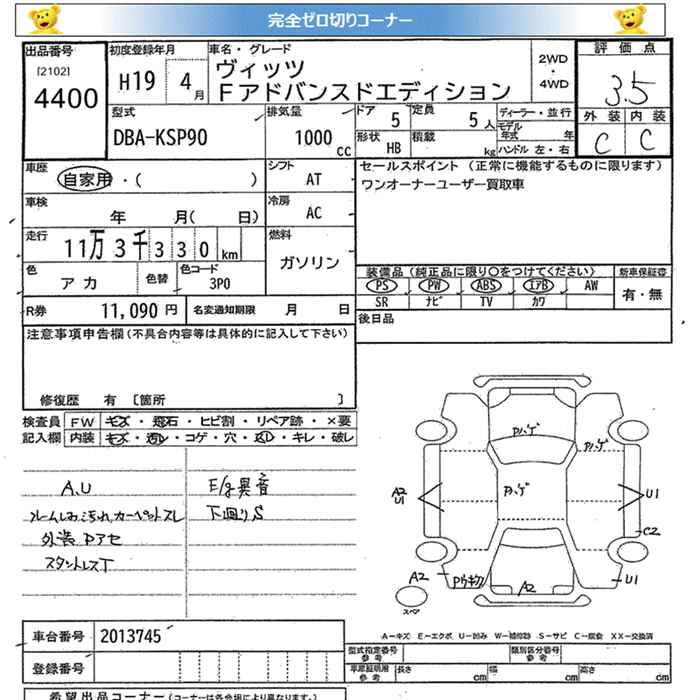 完全ゼロ切りコーナー
出品番号 初度登録年月 車名・グレード 2WD・4WD 評価点
[2102] 4400 H19 4月 ヴィッツ 3.5
Fアドバンスドエディション 外装 内装
C C
型式 排気量 ドア 定員 ディーラー・並行
DBA-KSP90 1000cc 5 5人 モデル年式 年
形状 積載 ハンドル 左・右
HB kg
車歴 シフト セールスポイント (正常に機能するものに限ります)
自家用・( ) AT ワンオーナーユーザー買取車
車検 冷房
年 月( 日) AC
走行 燃料
11万3千330km ガソリン
色 色替 色コード 装備品 (純正品に限り○をつけてください) 新車保証書
アカ 3P0 PS PW ABS エアB AW 有・無
SR ナビ TV カワ
R券 11,090円 名変通知期限 月 日 後日品
注意事項申告欄(不具合内容等は具体的に記入して下さい)
修復歴 有 [箇所 ]
検査員 FW キズ・飛石・ヒビ割・リペア跡・×要
記入欄 内装 キズ・汚レ・コゲ・穴・スレ・キレ・破レ
A.U E/g異音
下廻りS
外装Pアセ
Pハゲ
Pハゲ
Pハゲ
A2
U1
U1
C2
A2
A2
U1
スペア
A-キズ E-エクボ U-凹み W-補修跡 S-サビ C-腐食 XX-交換済
車台番号 2013745 型式指定番号 参考 類別区分番号 参考
登録番号 車庫証明用 参考 長さ cm 幅 cm 高さ cm
希望出品コーナー (コーナーは各会場により異なります。)